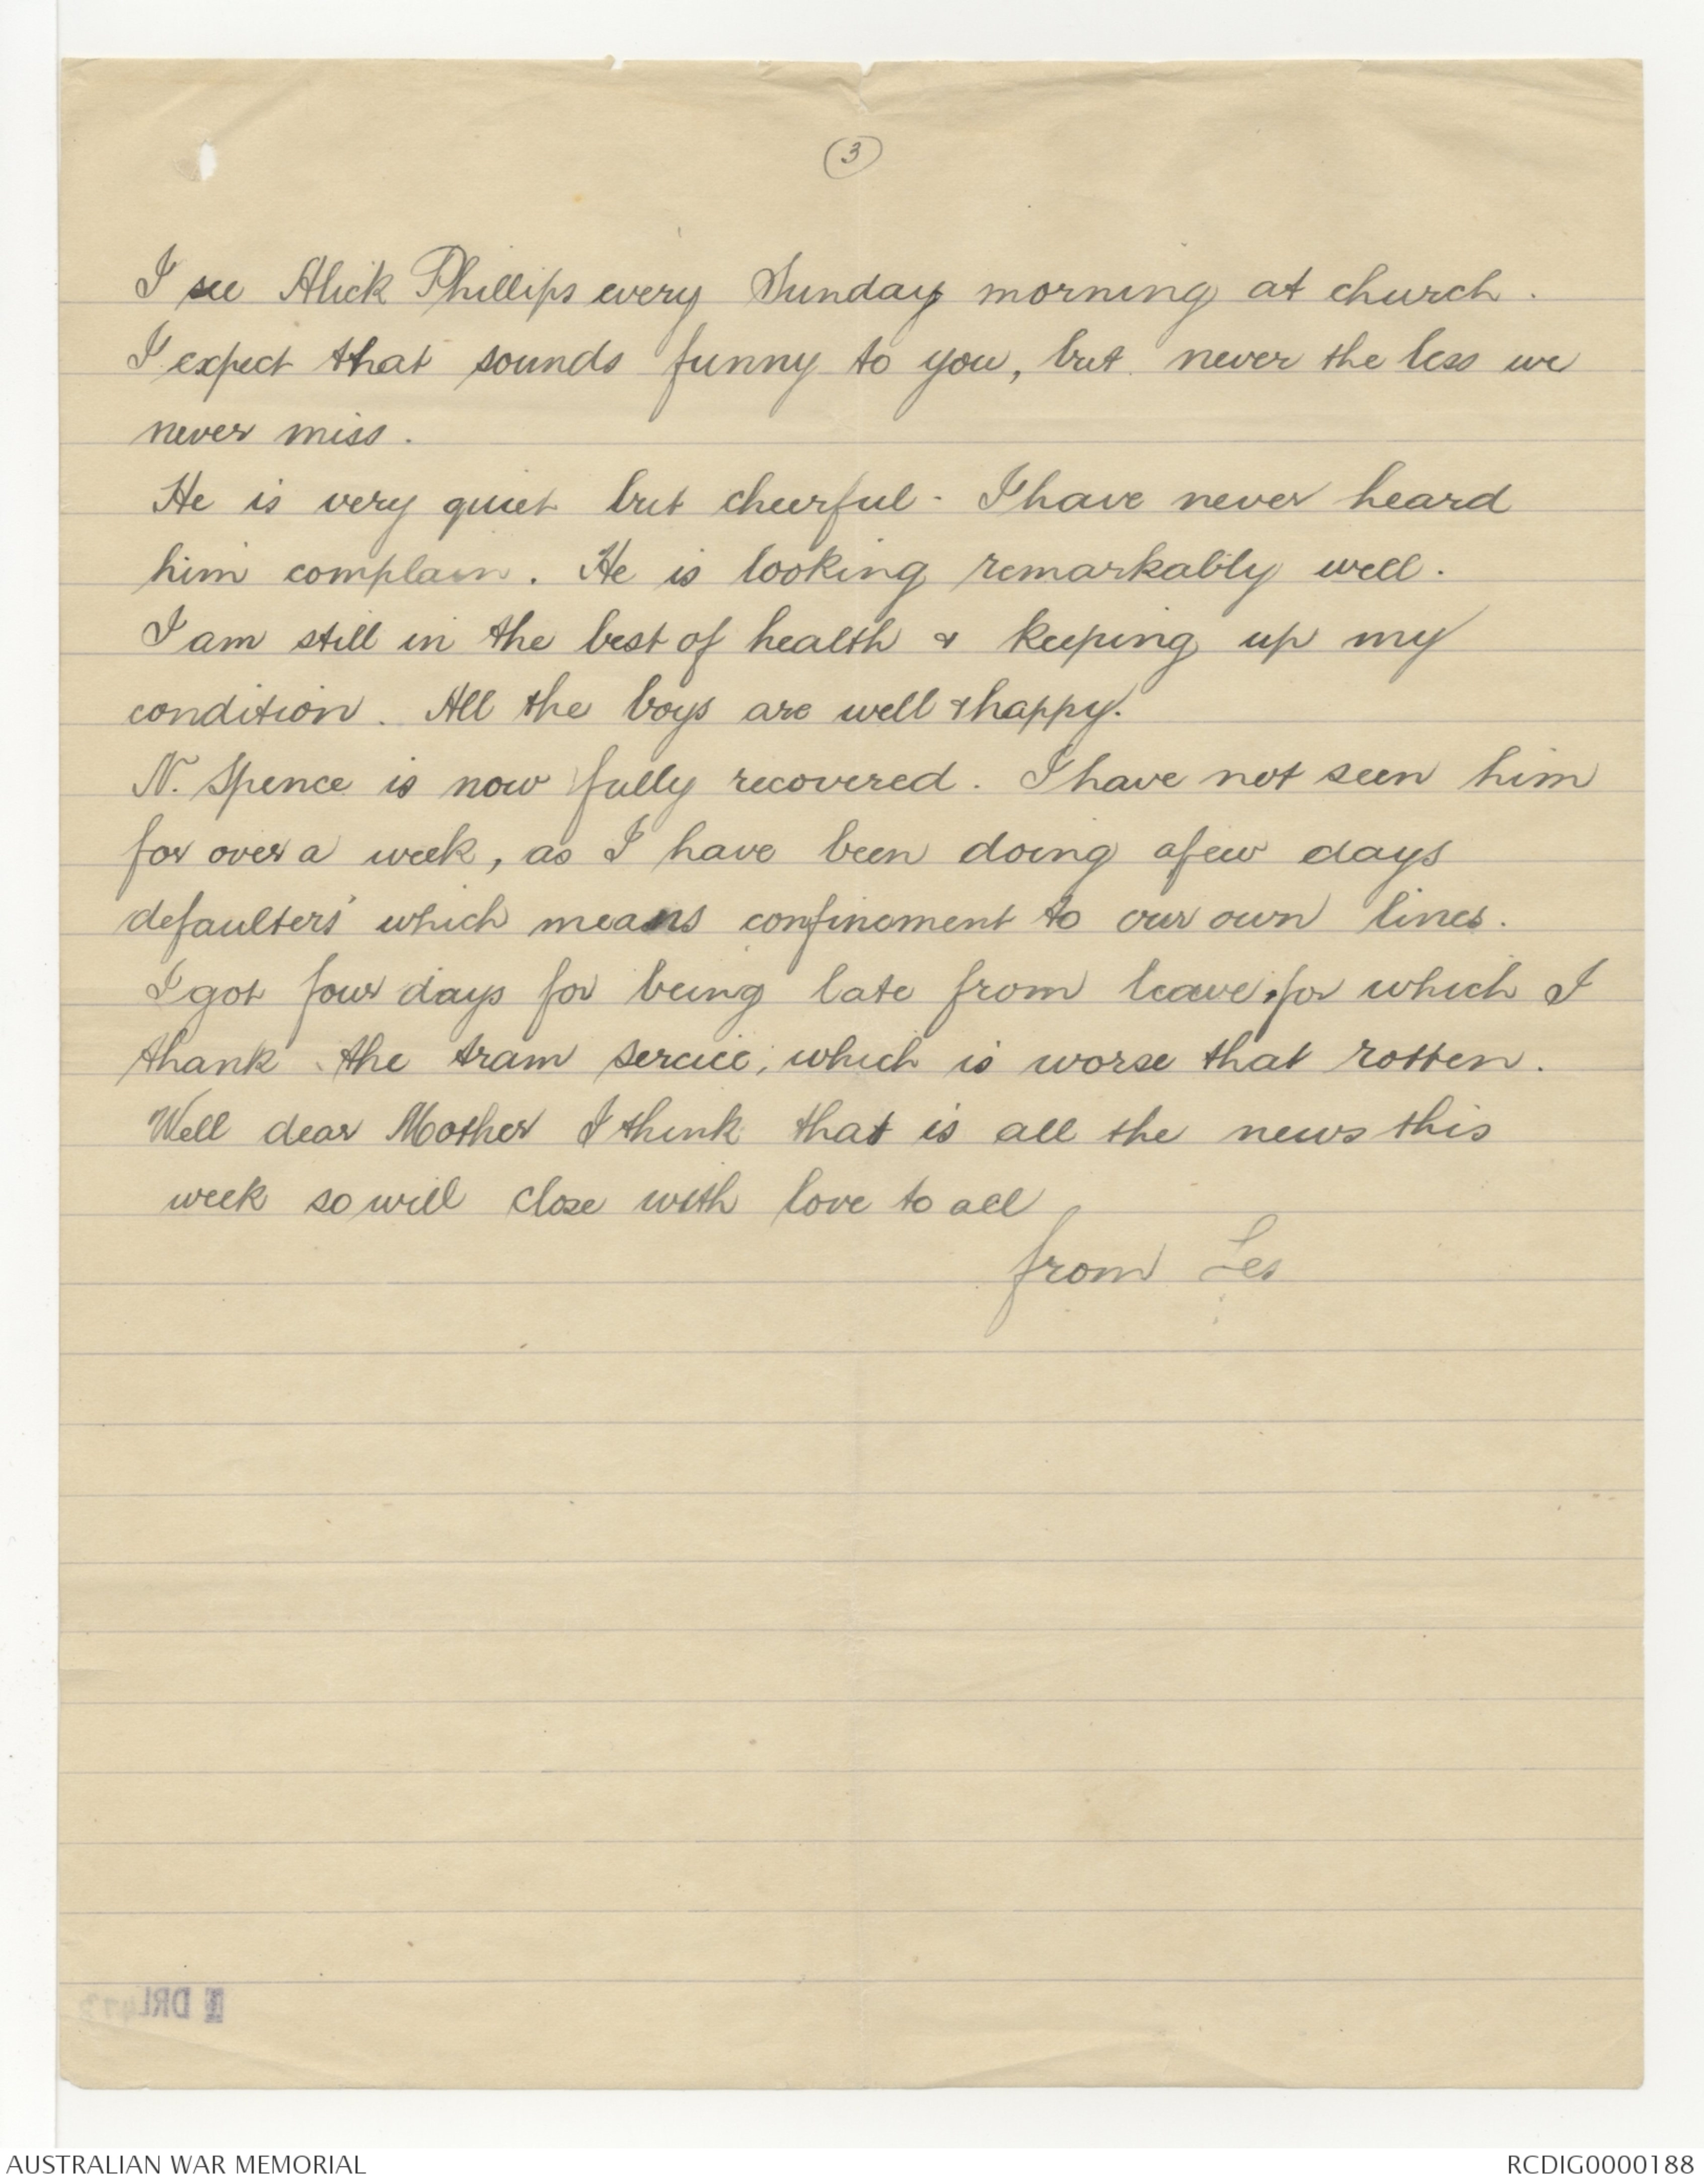 3
I see Alick Phillips every Sunday morning at church.
I expect that sounds funny to you, but never the less we
never miss.
He is very quiet but cheerful - I have never heard
him complain. He is looking remarkably well.
I am still in the best of health & keeping up my
condition. All the boys are well & happy.
N. Spence is now fully recovered. I have not seen him
for over a week, as I have been doing a few days
defaulters' which means confinement to our own lines.
I got four days for being late from leave, for which I
thank the tram service, which is worse that rotten.
Well dear Mother I think that is all the news this
week so will close with love to all
from Les
DRL
AUSTRALIAN WAR MEMORIAL
RCDIG0000188